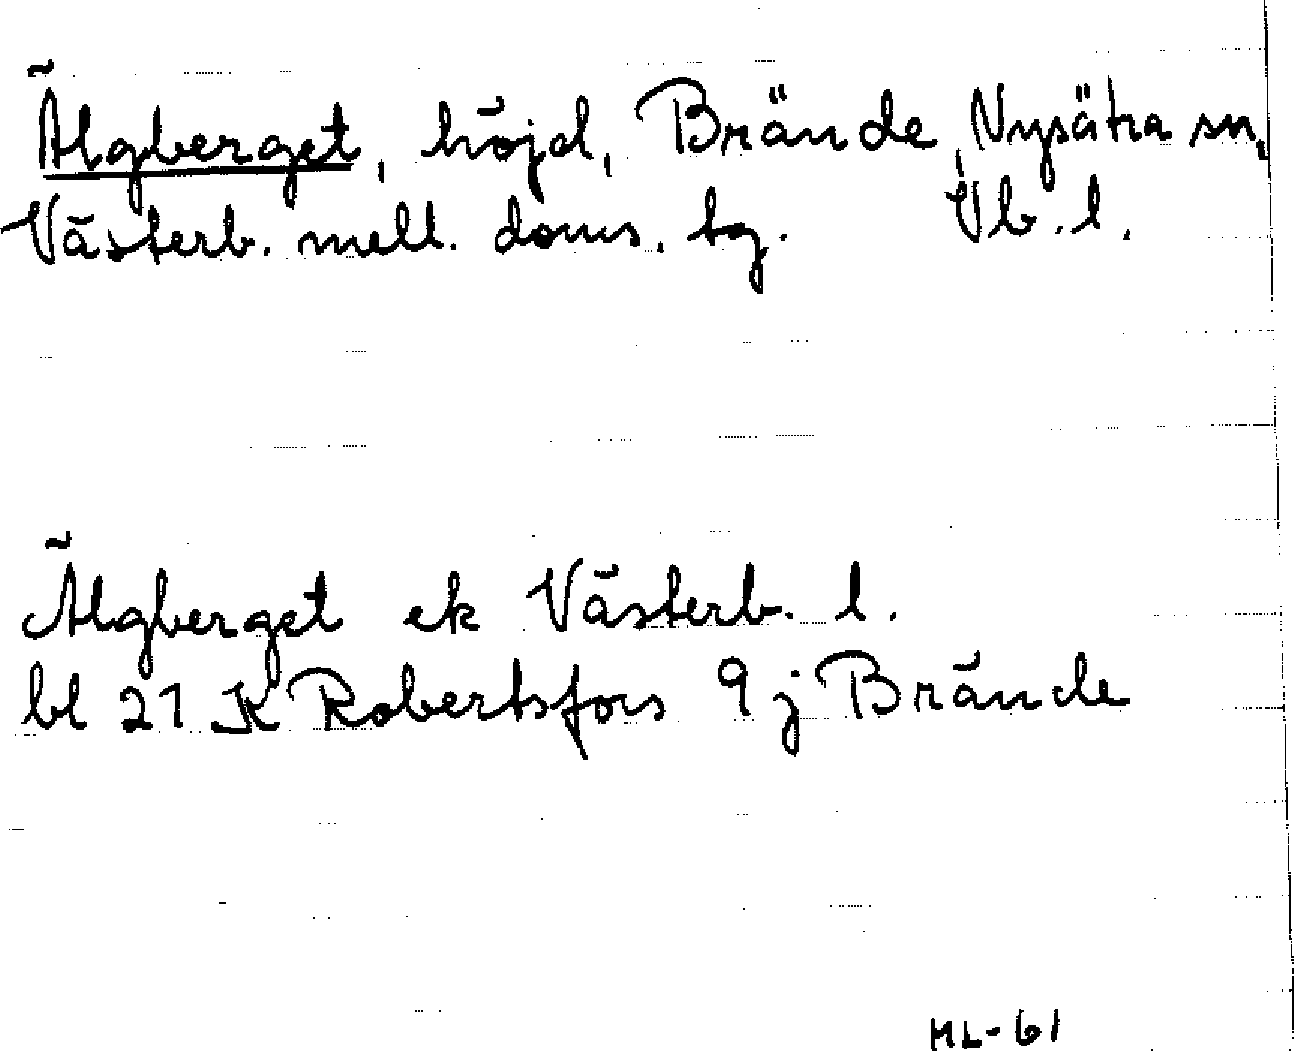 Älgberget, höjd, Brände, Nysätra sn,
Västerb. mell. doms. tg. Vb. l.
Älgberget ek Västerb. l.
bl 21 K Robertsfors 9 j Brände
ML-61